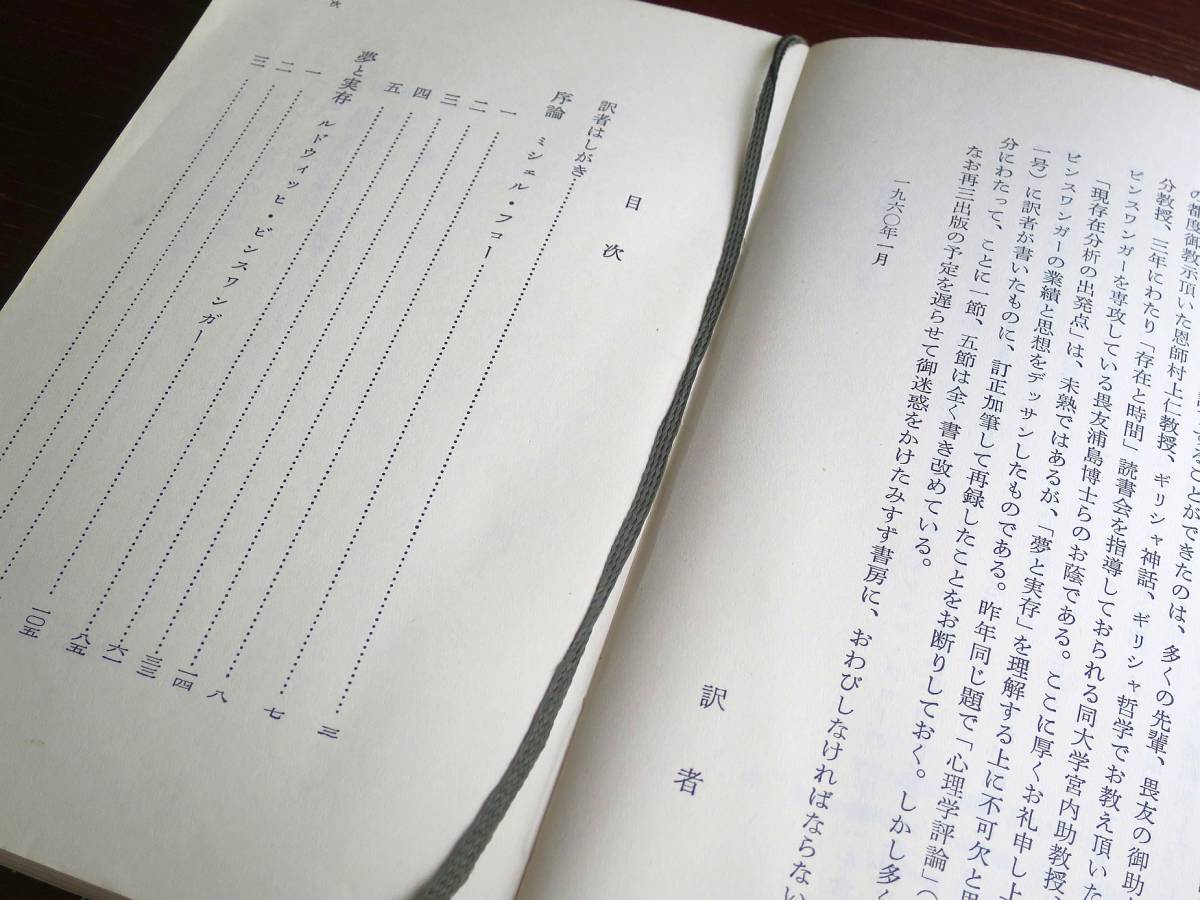 の都度御教示頂いた恩師村上仁教授、ギリシャ神話、ギリシャ哲学でお教え頂いた
分教授、三年にわたり「存在と時間」読書会を指導しておられる同大学宮内助教授、
ビンスワンガーを専攻している畏友浦島博士らのお蔭である。ここに厚くお礼申し上
「現存在分析の出発点」は、未熟ではあるが、「夢と実存」を理解する上に不可欠と思
ビンスワンガーの業績と思想をデッサンしたものである。昨年同じ題で「心理学評論」(
一号)に訳者が書いたものに、訂正加筆して再録したことをお断りしておく。しかし多く
分にわたって、ことに一節、五節は全く書き改めている。
なお再三出版の予定を遅らせて御迷惑をかけたみすず書房に、おわびしなければならない
一九六〇年一月
訳者
目次
訳者はしがき 三
序論 ミシェル・フコー 七
一 八
二 一四
三 三三
四 六一
五 八五
夢と実存 ルドウィッヒ・ビンスワンガー 一〇五
一
二
三
次